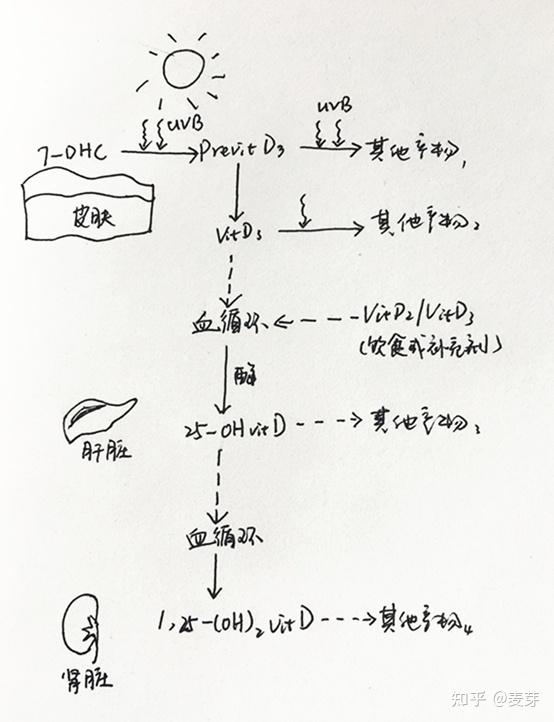 UVB
UVB
7-DHC
Previt D3
其他产物1
皮肤
VitD3
其他产物2
血循环
VitD2/VitD3
(饮食或补充剂)
酶
肝脏
25-OHvitD
其他产物3
血循环
肾脏
1,25-(OH)2vitD
其他产物4
知乎 @麦芽